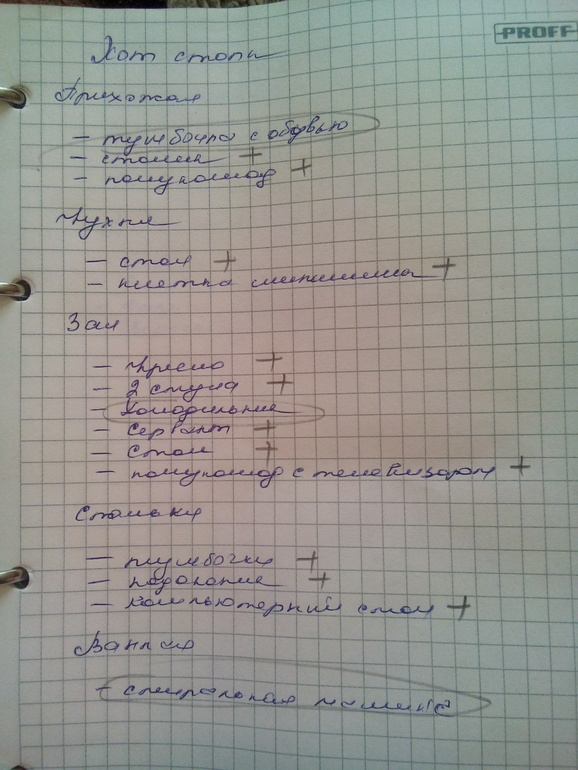 PROFF
Хот стопы
Прихожая
– тумбочка с обувью
– столик +
– полукомод +
Кухня
– стол +
– клетка +
Зал
– кресло +
– 2 стула +
– холодильник
– сервант +
– стол +
– полукомод с телевизором +
Спальня
– тумбочки +
– подоконник +
– компьютерний стол +
Ванная
– стиральная машина